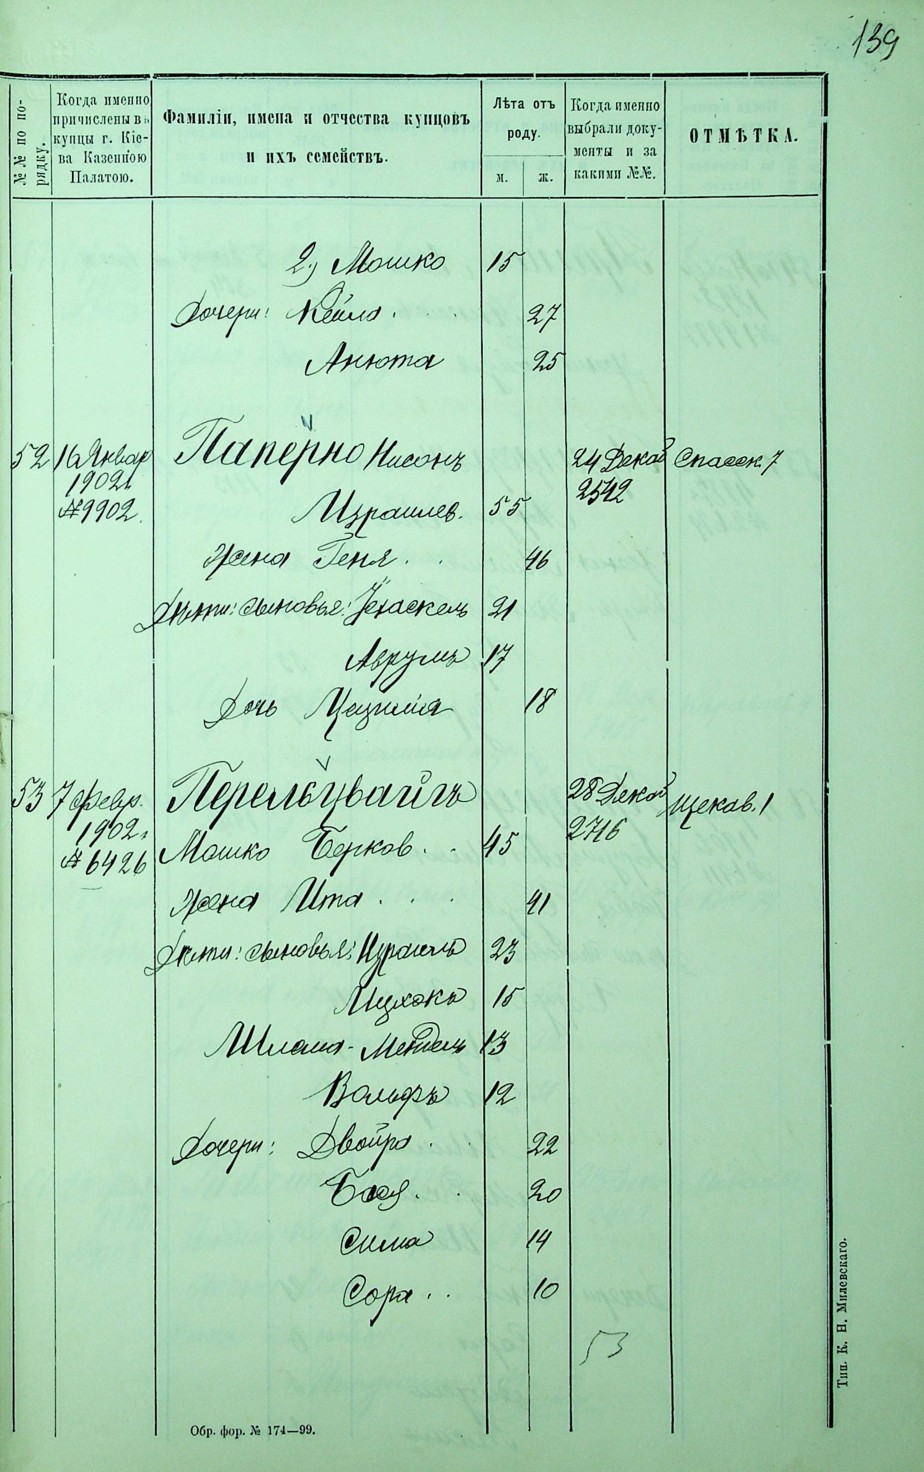 139
№№ по по-
рядку.
Когда именно
причислены въ
купцы г. Кіе-
ва Казенною
Палатою.
Фамиліи, имена и отчества купцовъ
и ихъ семействъ.
Лѣта отъ
роду.
м. ж.
Когда именно
выбрали доку-
менты и за
какими №№.
ОТМѢТКА.
2) Мошко 15
Дочери: Кейла 27
Анюта 25
52 16 Январ Паперно Нисонъ 24 Декаб Спасск. 7
1902 г. 2542
№ 9902. Израилев. 55
Жена Геня 46
Дѣти: сыновья: Ехаскель 21
Аврумъ 17
Дочь Цецилія 18
53 7 Февр. Перельцвайгъ 28 Декаб Щекав. 1
1902 г. 2716
№ 6426 Мошко Берков. 45
Жена Ита 41
Дѣти: сыновья: Израиль 23
Ицхокъ 15
Шлема-Мендель 13
Вольфъ 12
Дочери: Двойра 22
Бася 20
Сима 14
Сора 10
53
Обр. фор. № 174—99.
Тип. К. Н. Милевскаго.